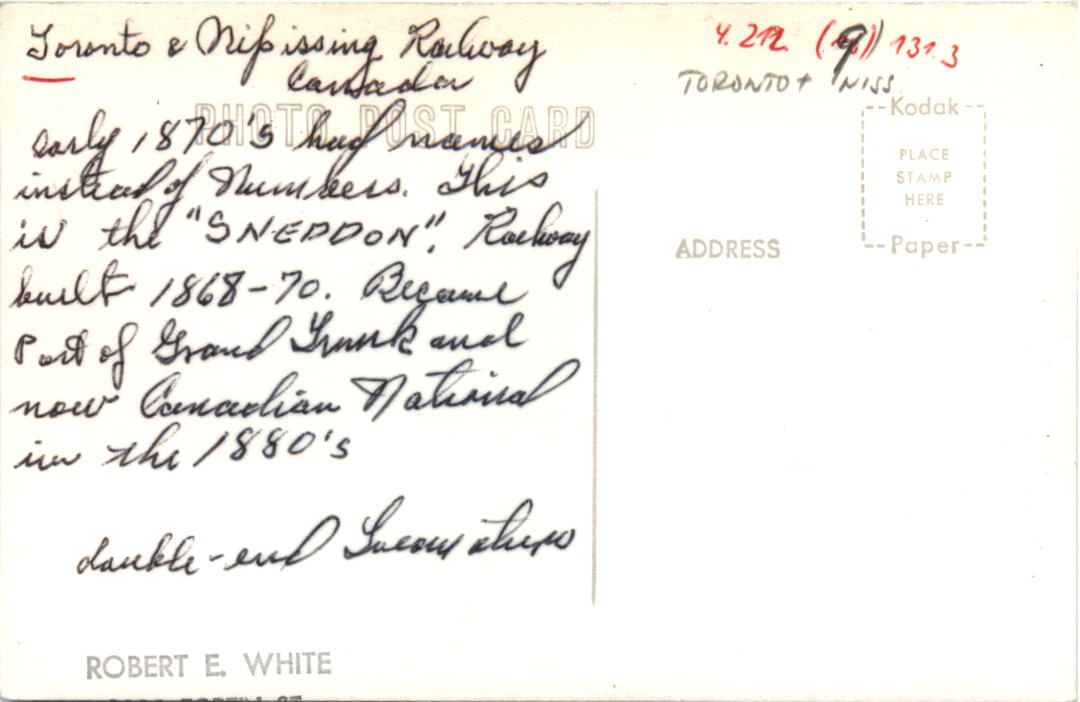 Toronto & Nipissing Railway
Canada
PHOTO POST CARD
early 1870's had names
instead of Numbers. This
is the "SNEDDON". Railway
built 1868-70. Became
Part of Grand Trunk and
now Canadian National
in the 1880's
double-end Locomotive
ROBERT E. WHITE
4.212. (9) 131.3
TORONTO + NISS
Kodak
PLACE
STAMP
HERE
Paper
ADDRESS